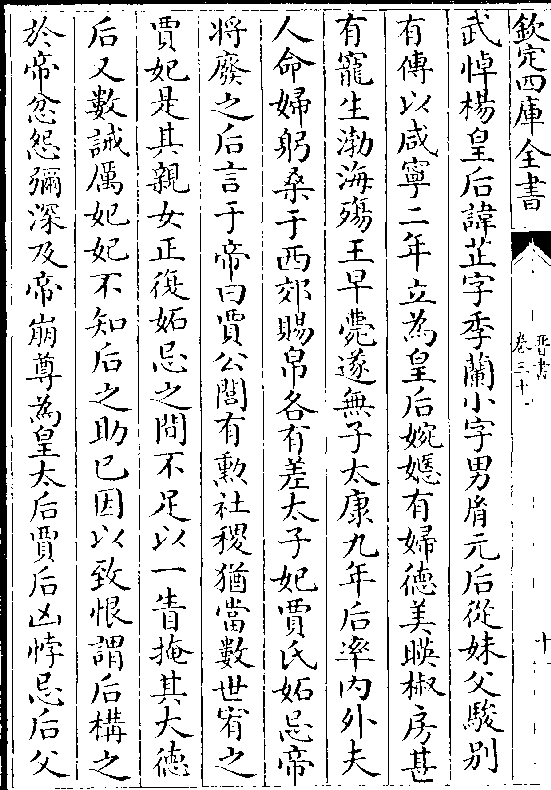 欽定四庫全書
晉書
卷三十一
十
武悼楊皇后諱芷字季蘭小字男胤元后從妹父駿别
有傳以咸寧二年立為皇后婉嫕有婦德美暎椒房甚
有寵生渤海殤王早薨遂無子太康九年后率内外夫
人命婦躬桑于西郊賜帛各有差太子妃賈氏妬忌帝
将廢之后言于帝曰賈公閭有勲社稷猶當數世宥之
賈妃是其親女正復妬忌之間不足以一眚掩其大德
后又數誡厲妃妃不知后之助已因以致恨謂后構之
於帝忿怨彌深及帝崩尊為皇太后賈后凶悖忌后父